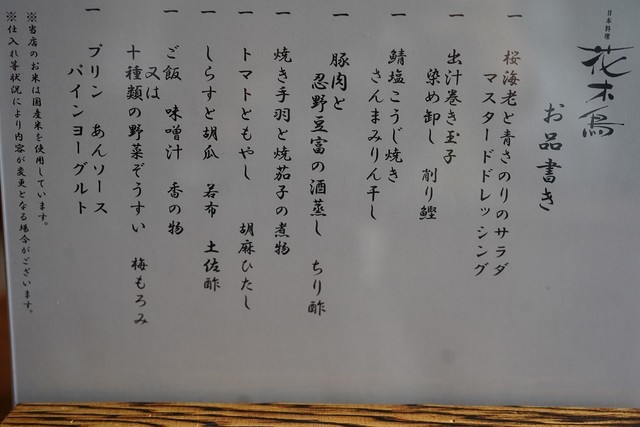 日本料理
花木鳥
お品書き
一 桜海老と青さのりのサラダ
マスタードドレッシング
一 出汁巻き玉子
染め卸し 削り鰹
一 鯖塩こうじ焼き
さんまみりん干し
一 豚肉と
忍野豆富の酒蒸し ちり酢
一 焼き手羽と焼茄子の煮物
一 トマトともやし 胡麻ひたし
一 しらすと胡瓜 若布 土佐酢
一 ご飯 味噌汁 香の物
又は
十種類の野菜ぞうすい 梅もろみ
一 プリン あんソース
パインヨーグルト
※当店のお米は国産米を使用しています。
※仕入れ等状況により内容が変更となる場合がございます。